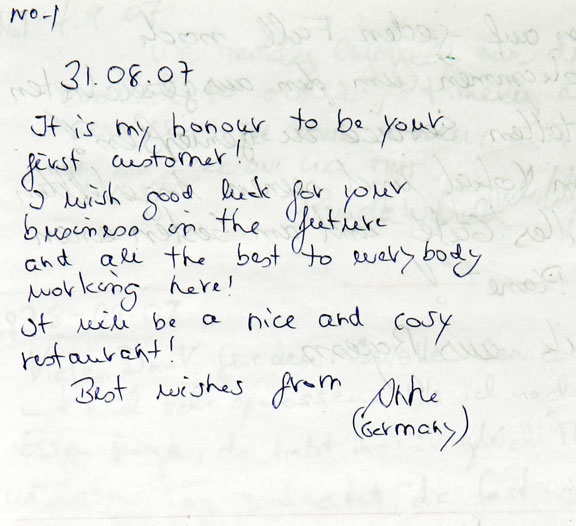 NO-1
31.08.07
It is my honour to be your
first customer!
I wish good luck for your
business in the future
and all the best to everybody
working here!
It will be a nice and cosy
restaurant!
Best wishes from Anne
(Germany)